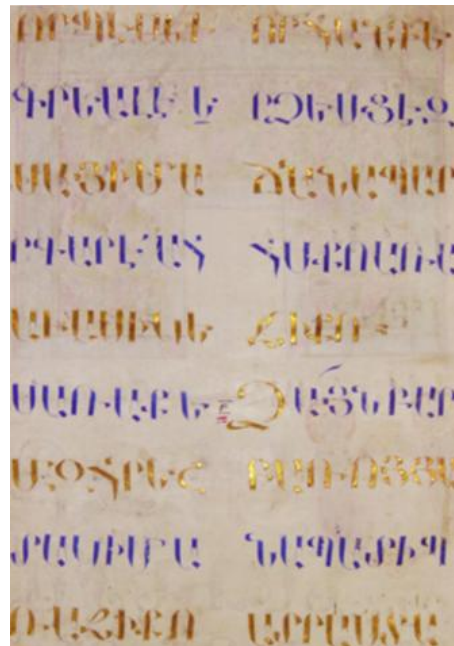 ՈՐՊԷՍ ԵՒ
ԳՐԵԱԼ Է Ե
ՍԱՅԻ ՄԱ
ՐԳԱՐԷ ԱՀ
ԱՒԱՍԻԿ Ե
Ս ԱՌԱՔԵ
Մ ԶՀՐԵՇ
ՏԱԿ ԻՄ Ա
ՌԱՋԻ ՔՈ
ՈՐ ՀԱՆԴԵ
ՐՁԵՍՑԷ Զ
ՃԱՆԱՊԱՐ
ՀՍ ՔՈ ԱՌԱ
ՋԻ ՔՈ։
ՁԱՅՆ ԲԱՐ
ԲԱՌՈՅ ՅԱ
ՆԱՊԱՏԻ Պ
ԱՏՐԱՍՏ Ա